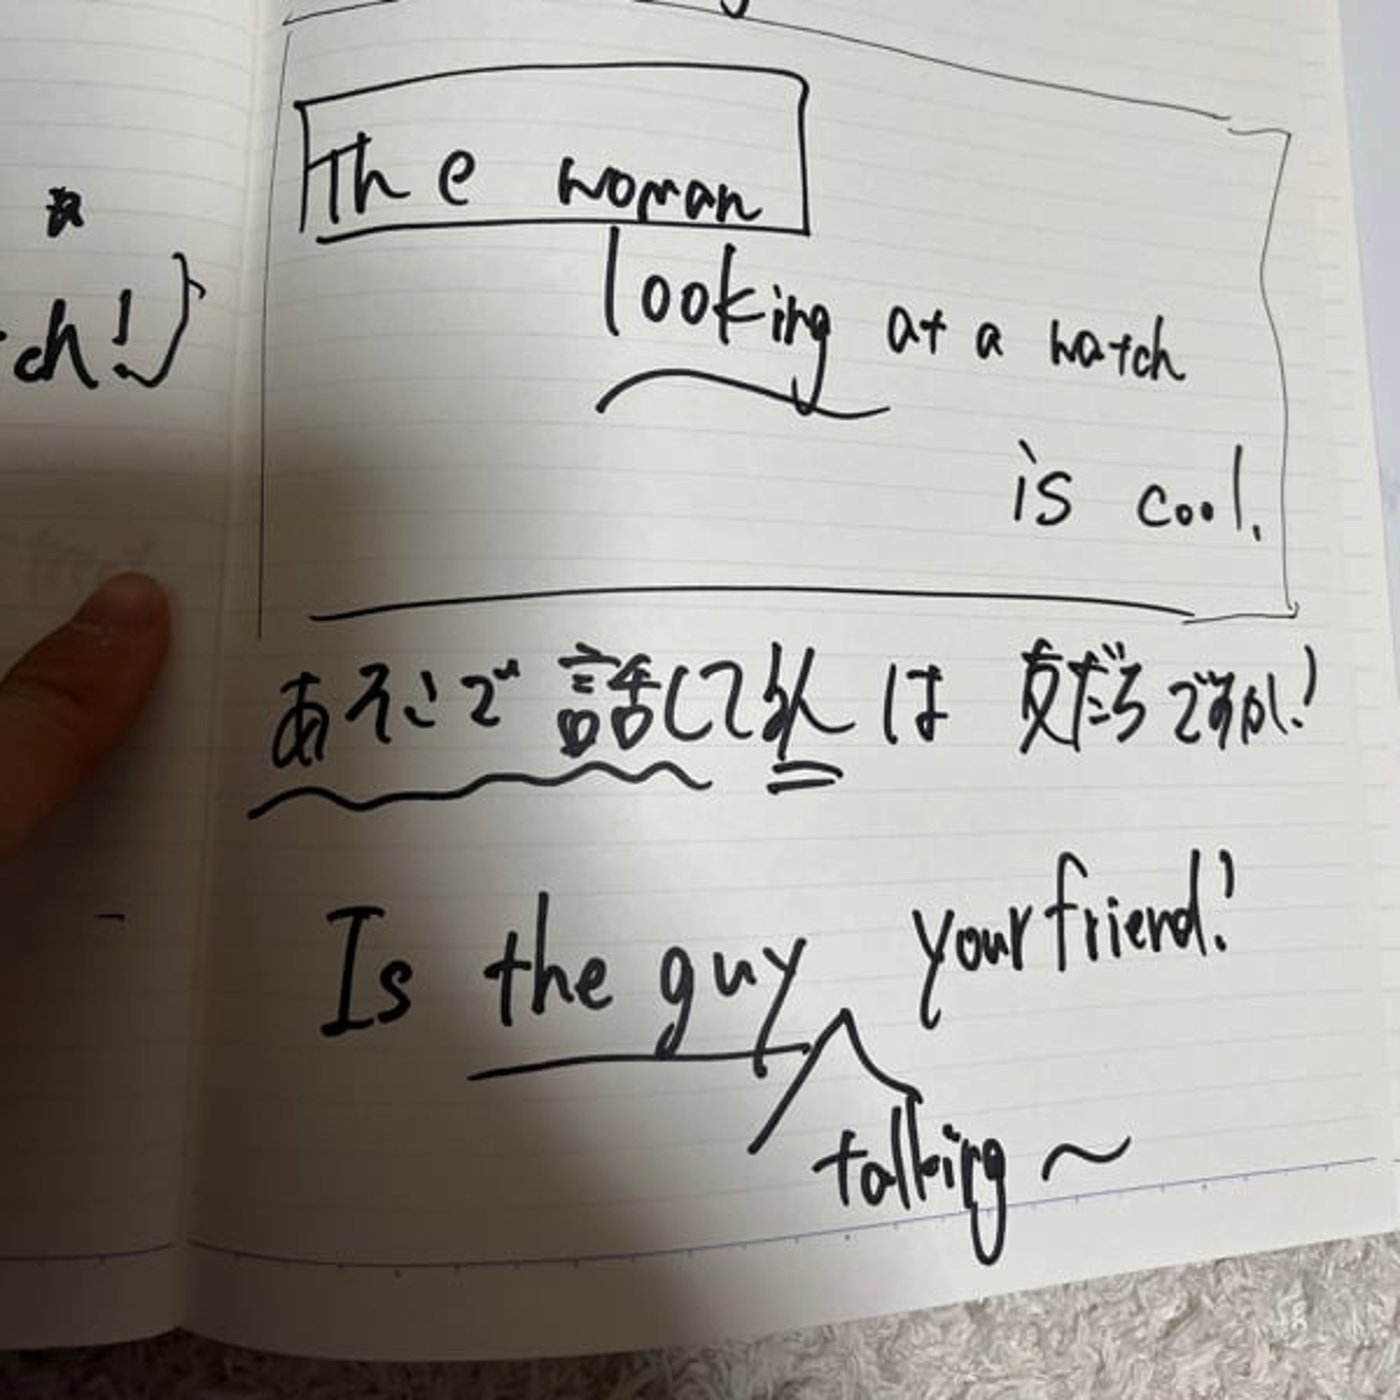 ch!
The woman
looking at a watch
is cool.
あそこで話してる人は友だちですか!
Is the guy your friend!
talking ~